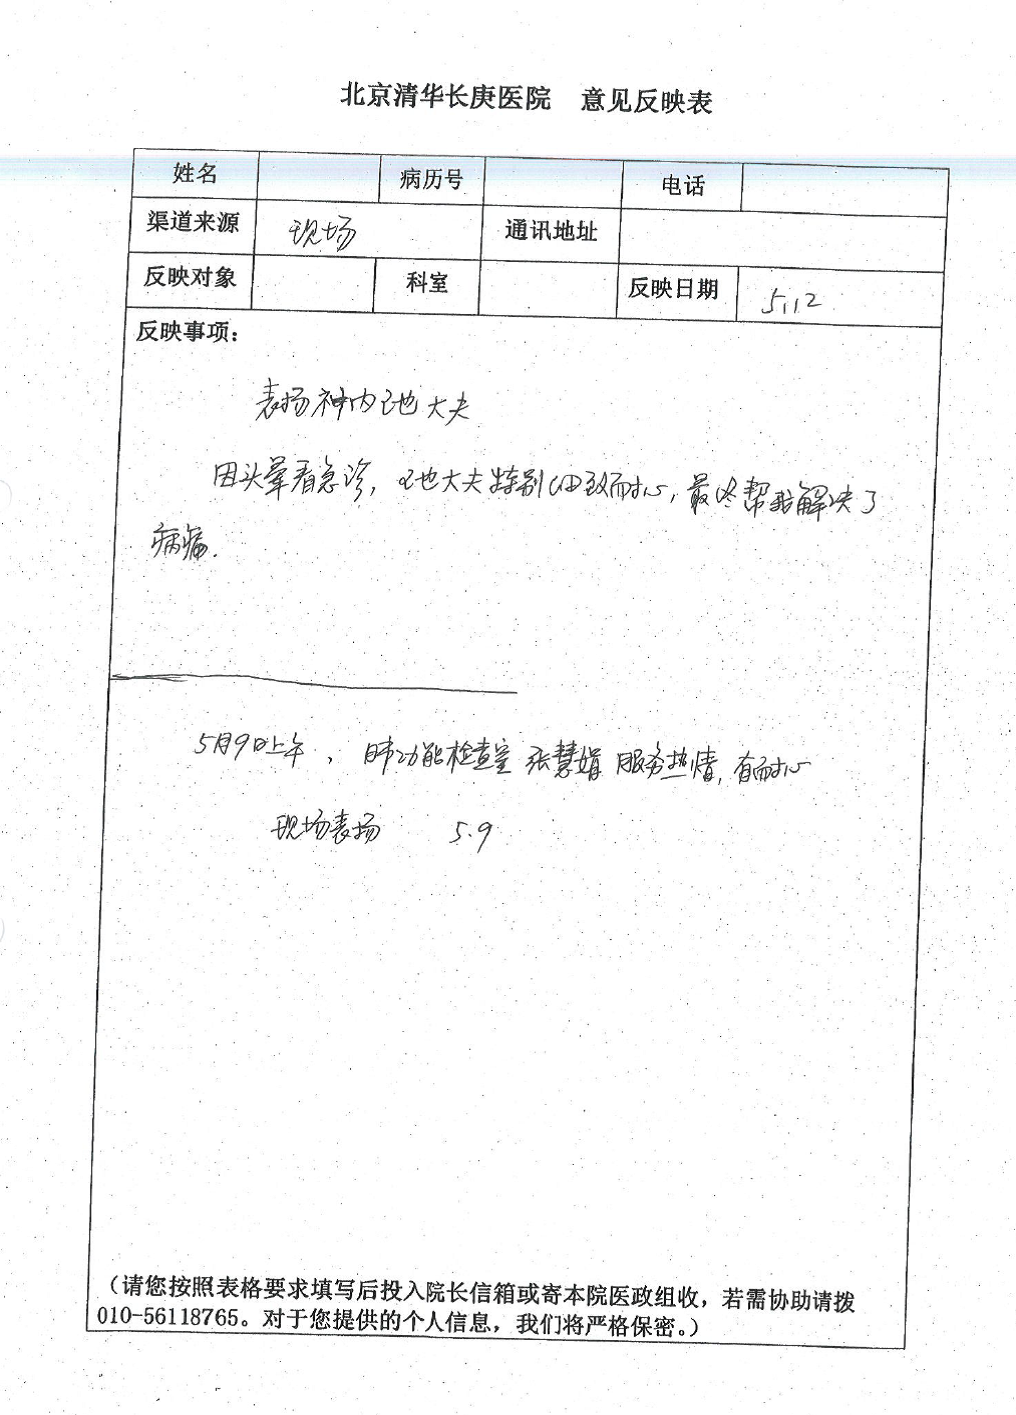 北京清华长庚医院 意见反映表
姓名 病历号 电话
渠道来源 现场 通讯地址
反映对象 科室 反映日期 5.12
反映事项：
表扬神内王也大夫
因头晕看急诊，王也大夫特别细致耐心，最终帮我解决了
病痛．
5月9日上午，肺功能检查室 张慧娟 服务热情，有耐心
现场表扬 5.9
（请您按照表格要求填写后投入院长信箱或寄本院医政组收，若需协助请拨
010-56118765。对于您提供的个人信息，我们将严格保密。）